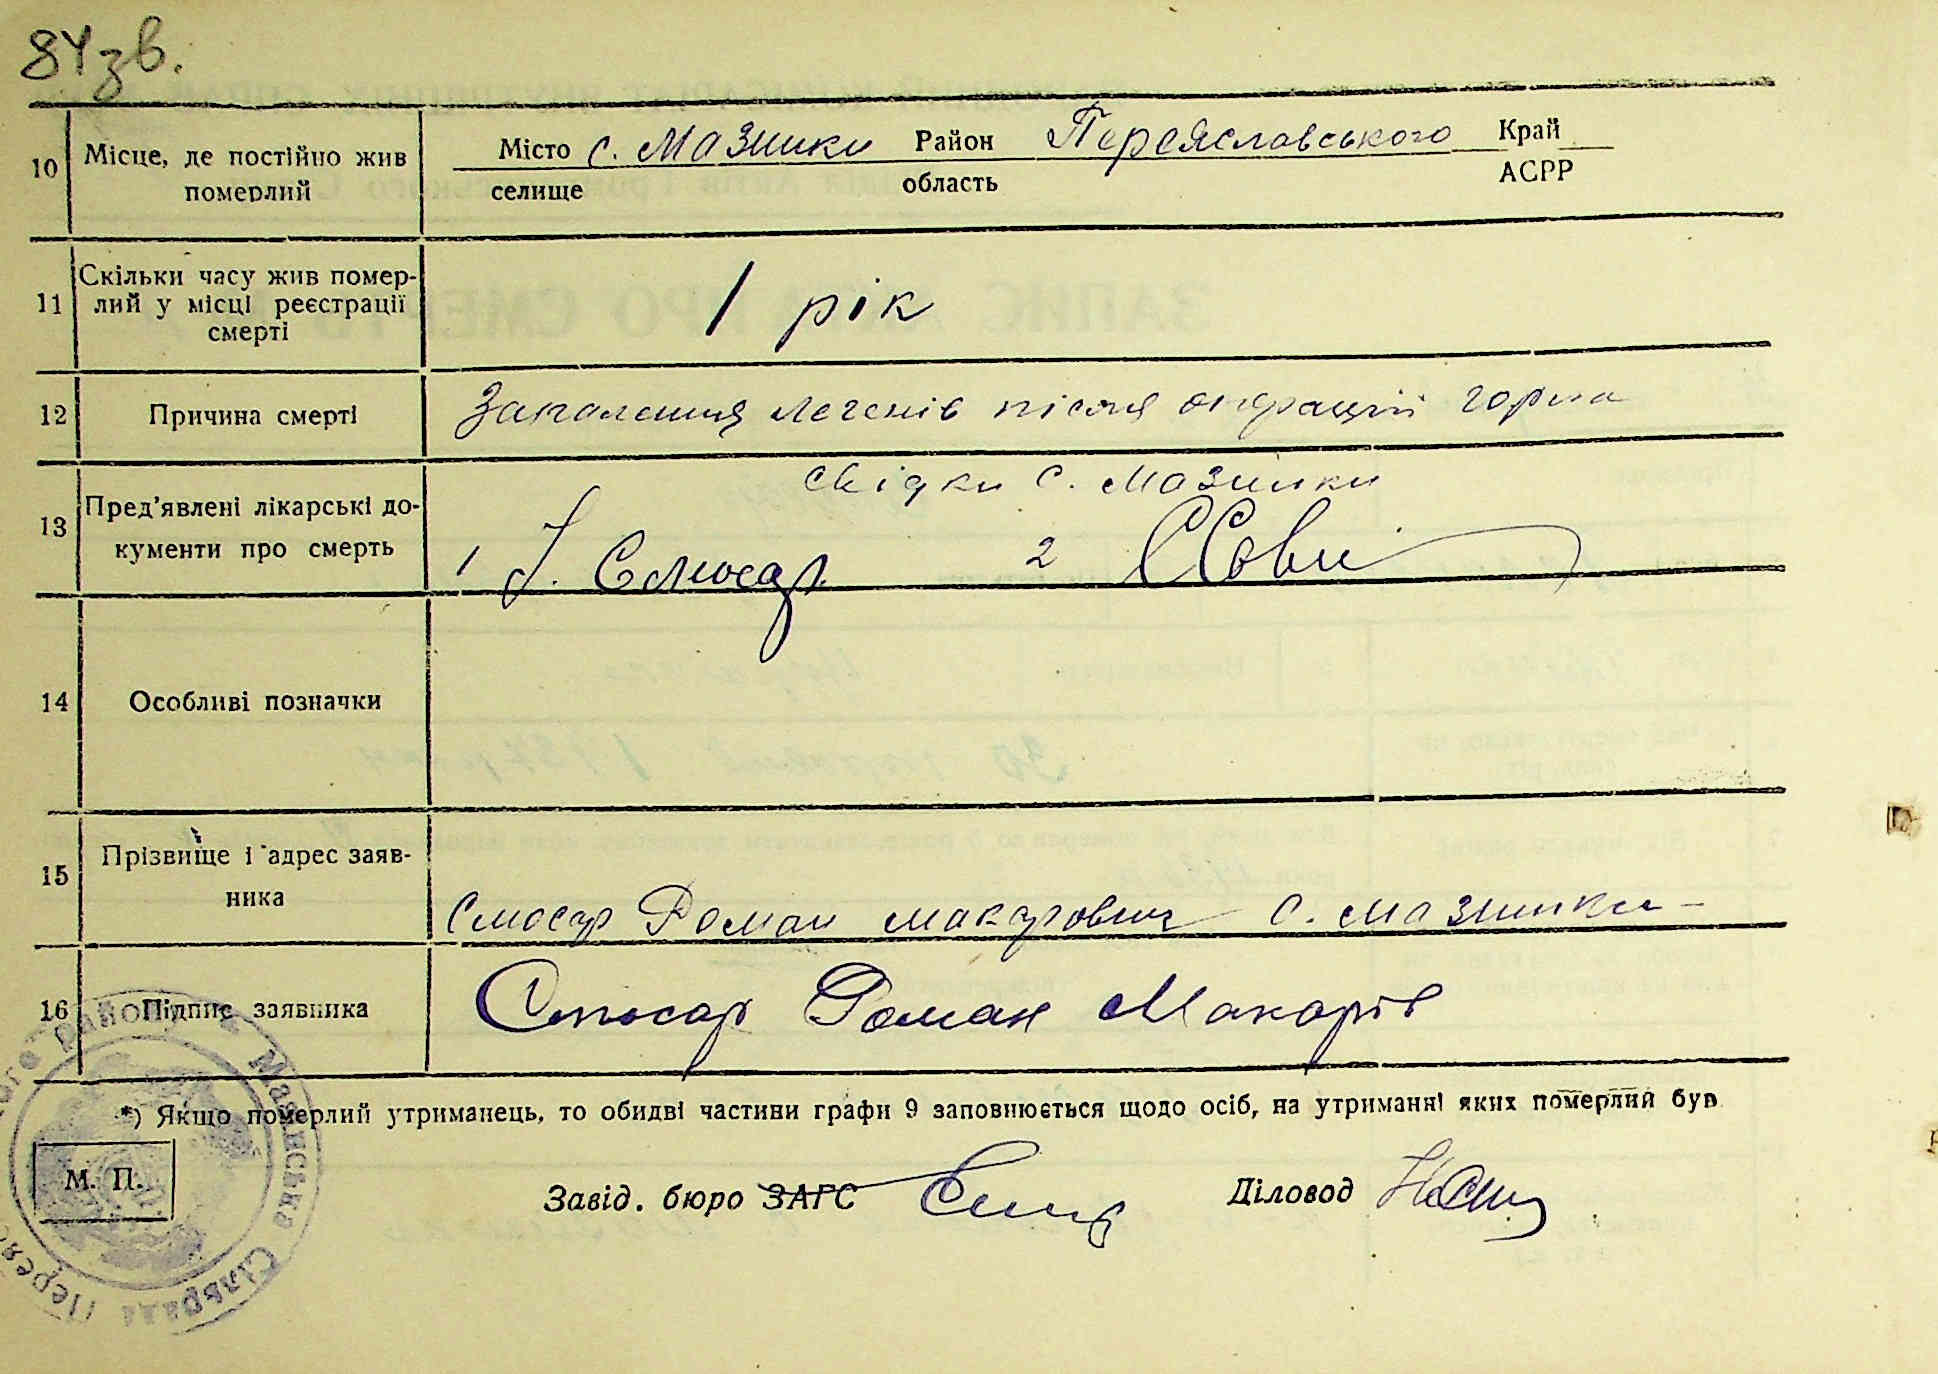 84зв.
10 Місце, де постійно жив померлий
Місто с. Мазинки Район Переяславського Край
селище область АСРР
11 Скільки часу жив померлий у місці реєстрації смерті
1 рік
12 Причина смерті
Запалення легенів після операції горла
13 Пред'явлені лікарські документи про смерть
свідки с. Мазинки
1 Слюсар 2
14 Особливі позначки
15 Прізвище і адрес заявника
Слюсар Роман Макарович с. Мазинки
16 Підпис заявника
Слюсар Роман Макарів
*) Якщо померлий утриманець, то обидві частини графи 9 заповнюється щодо осіб, на утриманні яких померлий був
М. П.
Завід. бюро ЗАГС Діловод
Сільрада